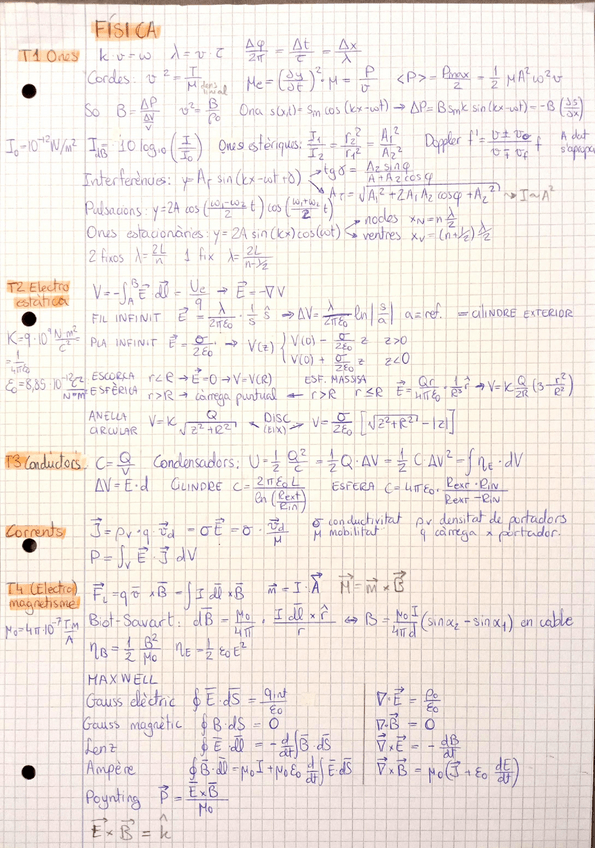 FÍSICA
T1 Ones  k v = ω  λ = v τ  Δφ/2π = Δt/τ = Δx/λ
Cordes: v² = T/μ dens lineal  Me = (∂y/∂t)² · M = P/v  <P> = Pmax/2 = 1/2 μA²ω²v
So  B = ΔP/(ΔV/V)  v² = B/ρ₀  Ona s(x,t) = Sm cos(kx-ωt) → ΔP = B Sm k sin(kx-ωt) = -B (∂s/∂x)
I₀ = 10⁻¹² N/m²  I dB = 10 log₁₀(I/I₀)  Ones esfèriques: I₁/I₂ = r₂²/r₁² = A₁²/A₂²  Doppler f' = (v ± v₀)/(v ∓ vf) f
Interferències: y = Ar sin(kx-ωt+δ)  tg σ = A₂ sin φ/(A + A₂ cos φ)
Ar = √(A₁² + 2A₁A₂ cos φ + A₂²) → I ~ A²
Pulsacions: y = 2A cos((ω₁-ω₂)/2 t) cos((ω₁+ω₂)/2 t)
Ones estacionàries: y = 2A sin(kx) cos(ωt)  nodes xN = n λ/2
ventres xV = (n+1/2) λ/2
2 fixos λ = 2L/n  1 fix λ = 2L/(n-1/2)
T2 Electro estàtica  V = -∫A^B E⃗ dl⃗ = Ue/q → E⃗ = -∇V
FIL INFINIT  E⃗ = λ/2πε₀ · 1/s ŝ → ΔV = λ/2πε₀ ln|s/a|  a = ref. = CILINDRE EXTERIOR
K = 9·10⁹ N·m²/C² = 1/4πε₀  PLA INFINIT  E⃗ = σ/2ε₀ → V(z) { V(0) - σ/2ε₀ z  z>0
V(0) + σ/2ε₀ z  z<0
ε₀ = 8,85·10⁻¹² C²/N·m²  ESCORÇA ESFÈRICA  r<R → E⃗ = 0 → V = V(R)  ESF. MASSISSA
r>R → càrrega puntual ← r>R  r≤R  E⃗ = Qr/4πε₀ · 1/R³ r̂ → V = K Q/2R (3 - r²/R²)
ANELLA CIRCULAR  V = K Q/√(z²+R²)  DISC (eix)  V = σ/2ε₀ [√(z²+R²) - |z|]
T3 Conductors  C = Q/V  Condensadors: U = 1/2 Q²/C = 1/2 Q·ΔV = 1/2 C ΔV² = ∫ηE·dV
ΔV = E·d  CILINDRE C = 2πε₀L/ln(Rext/Rin)  ESFERA C = 4πε₀ · Rext·Rin/(Rext-Rin)
Corrents  J⃗ = ρv·q·v⃗d = σE⃗ = σ · v⃗d/μ  σ conductivitat  ρv densitat de portadors
μ mobilitat  q càrrega x portador.
P = ∫v E⃗·J⃗ dV
T4 (Electro) magnetisme  F⃗L = q v⃗ × B⃗ = ∫ I dl⃗ × B⃗  m⃗ = I·A⃗  M⃗ = m⃗ × B⃗
μ₀ = 4π·10⁻⁷ Tm/A  Biot-Savart: dB⃗ = μ₀/4π · I dl⃗ × r̂/r ⇔ B = μ₀I/4πd (sin α₂ - sin α₁) en cable
ηB = 1/2 B²/μ₀  ηE = 1/2 ε₀E²
MAXWELL
Gauss elèctric  ∮ E⃗·dS⃗ = qint/ε₀  ∇·E⃗ = ρ₀/ε₀
Gauss magnètic  ∮ B·dS = 0  ∇·B⃗ = 0
Lenz  ∮ E⃗·dl⃗ = -d/dt ∫B⃗·dS  ∇⃗×E⃗ = -dB/dt
Ampère  ∮ B⃗·dl⃗ = μ₀I + μ₀ε₀ d/dt ∫E⃗·dS  ∇⃗×B⃗ = μ₀(J⃗ + ε₀ dE/dt)
Poynting  P⃗ = E⃗×B⃗/μ₀
E⃗ × B⃗ = k̂